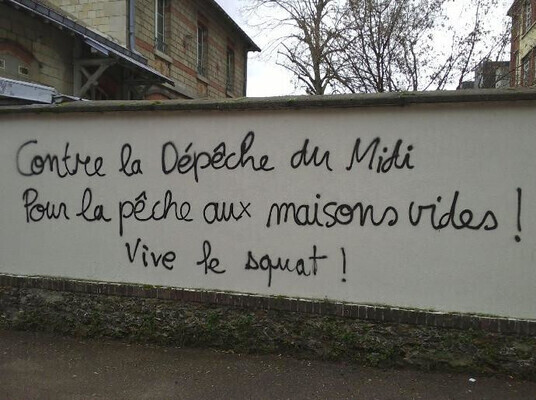 Contre la Dépêche du Midi
Pour la pêche aux maisons vides !
Vive le squat !